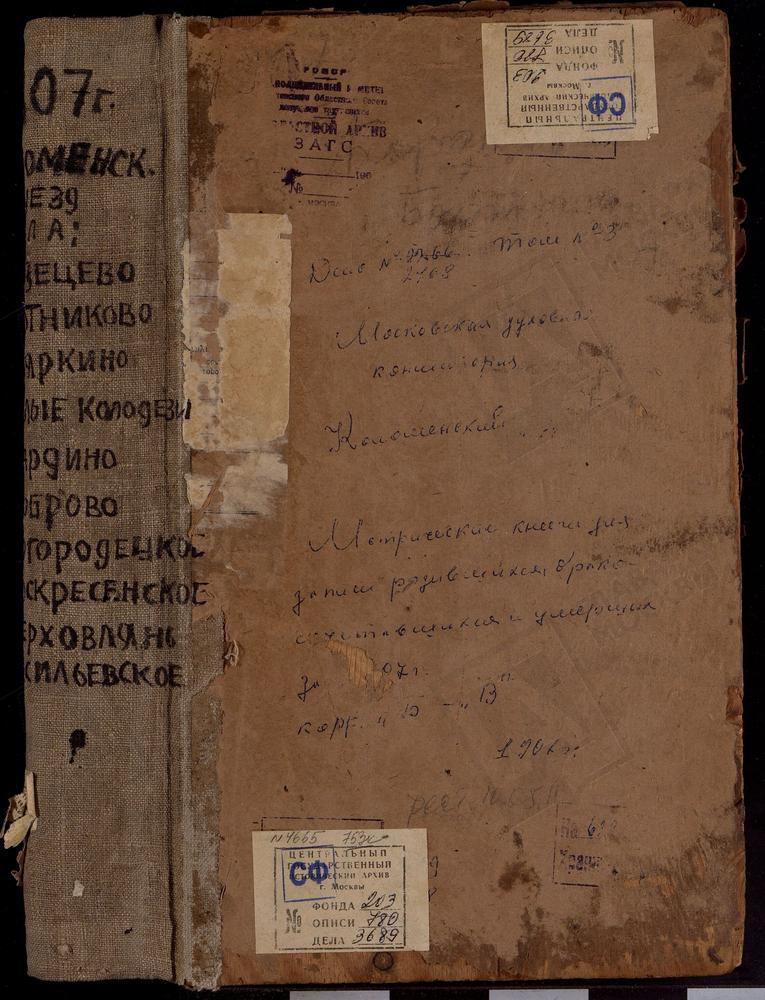 07г.
ОМЕНСК.
ЕЗД
ЛА;
ЗЕЦЕВО
ТНИКОВО
ЯРКИНО
ЛЫЕ КОЛОДЕЗИ
АРДИНО
ОБРОВО
ОГОРОДЕЦКОЕ
СКРЕСЕНСКОЕ
ЕРХОВЛЯНЬ
СИЛЬЕВСКОЕ
РСФСР
ОБЛАСТНОЙ АРХИВ
ЗАГС
№
МОСКВА
ЦЕНТРАЛЬНЫЙ
ГОСУДАРСТВЕННЫЙ
ИСТОРИЧЕСКИЙ АРХИВ
г. Москвы
СФ
ФОНДА 203
№ ОПИСИ 780
ДЕЛА
Дело № Том № 3
2768
Московская духовная
консистория
Коломенский
Метрические книги для
записи родившихся, брако-
сочетавшихся и умерших
за 07г.
корр. "Б - "В"
N4665 753
ЦЕНТРАЛЬНЫЙ
ГОСУДАРСТВЕННЫЙ
ИСТОРИЧЕСКИЙ АРХИВ
г. Москвы
СФ
ФОНДА 203
№ ОПИСИ 780
ДЕЛА 3689